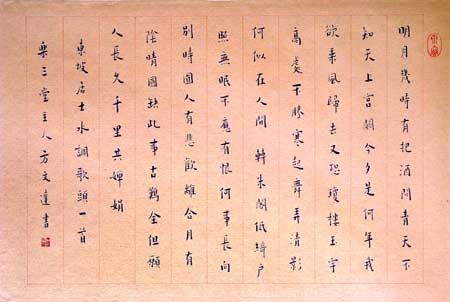 明月幾時有把酒問青天不
知天上宮闕今夕是何年我
欲乘風歸去又恐瓊樓玉宇
高處不勝寒起舞弄清影
何似在人間轉朱閣低綺戶
照無眠不應有恨何事長向
別時圓人有悲歡離合月有
陰晴圓缺此事古難全但願
人長久千里共嬋娟
東坡居士水調歌頭一首
樂三堂主人方文達書